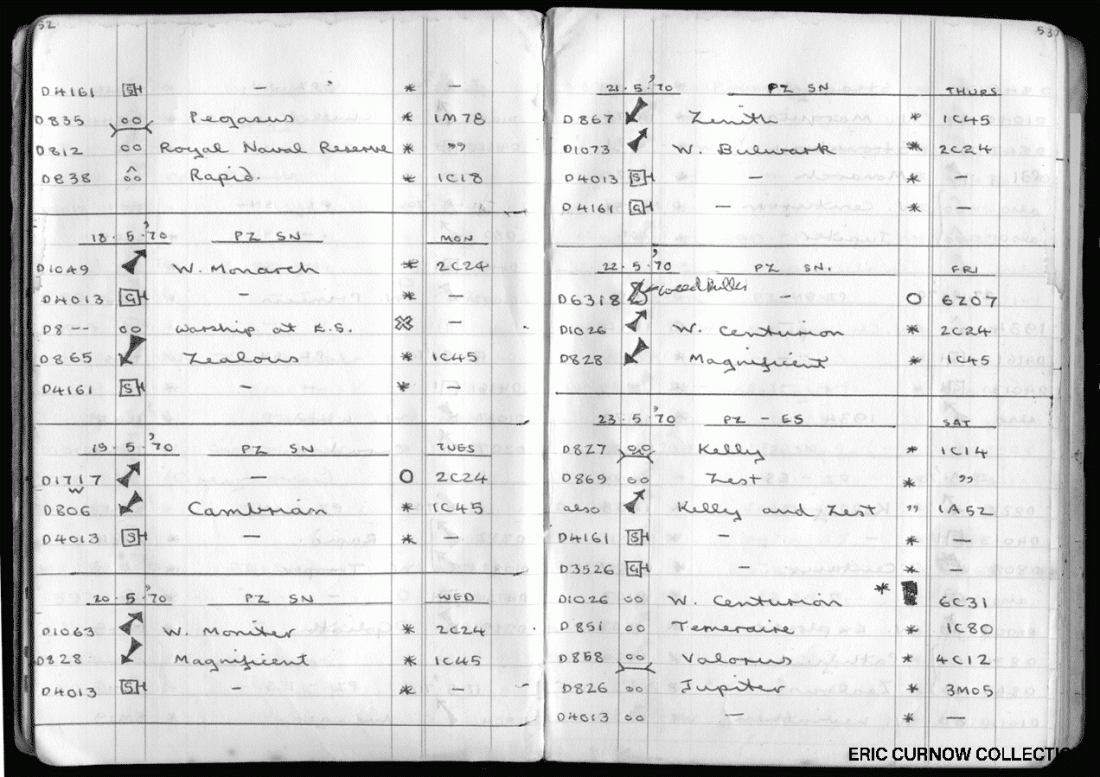 52
D4161 SH - * -
D835 oo Pegasus * 1M78
D812 oo Royal Naval Reserve * ”
D838 oo Rapid. * 1C18
18.5.'70 PZ SN MON
D1049 W. Monarch * 2C24
D4013 GH - * -
D8-- oo Warship at E.S. -
D865 Zealous * 1C45
D4161 SH - * -
19.5.'70 PZ SN TUES
D1717 - O 2C24
W
D806 Cambrian * 1C45
D4013 SH - * -
20 5 '70 PZ SN WED
D1063 W. Moniter * 2C24
D828 Magnificent * 1C45
D4013 SH - * -
53
21.5.'70 PZ SN THURS
D867 Zenith * 1C45
D1073 W. Bulwark * 2C24
D4013 SH - * -
D4161 GH - * -
22.5.'70 PZ SN. FRI
D6318 Weed Killer O 6Z07
D1026 W. Centurion * 2C24
D828 Magnificent * 1C45
23.5.'70 PZ - ES SAT
D827 oo Kelly * 1C14
D869 oo Zest * ”
also Kelly and Zest ” 1A52
D4161 SH - * -
D3526 GH - * -
D1026 oo W. Centurion * 6C31
D851 oo Temeraire * 1C80
D858 oo Valorus * 4C12
D826 oo Jupiter * 3M05
D4013 oo - * -
ERIC CURNOW COLLECTIO